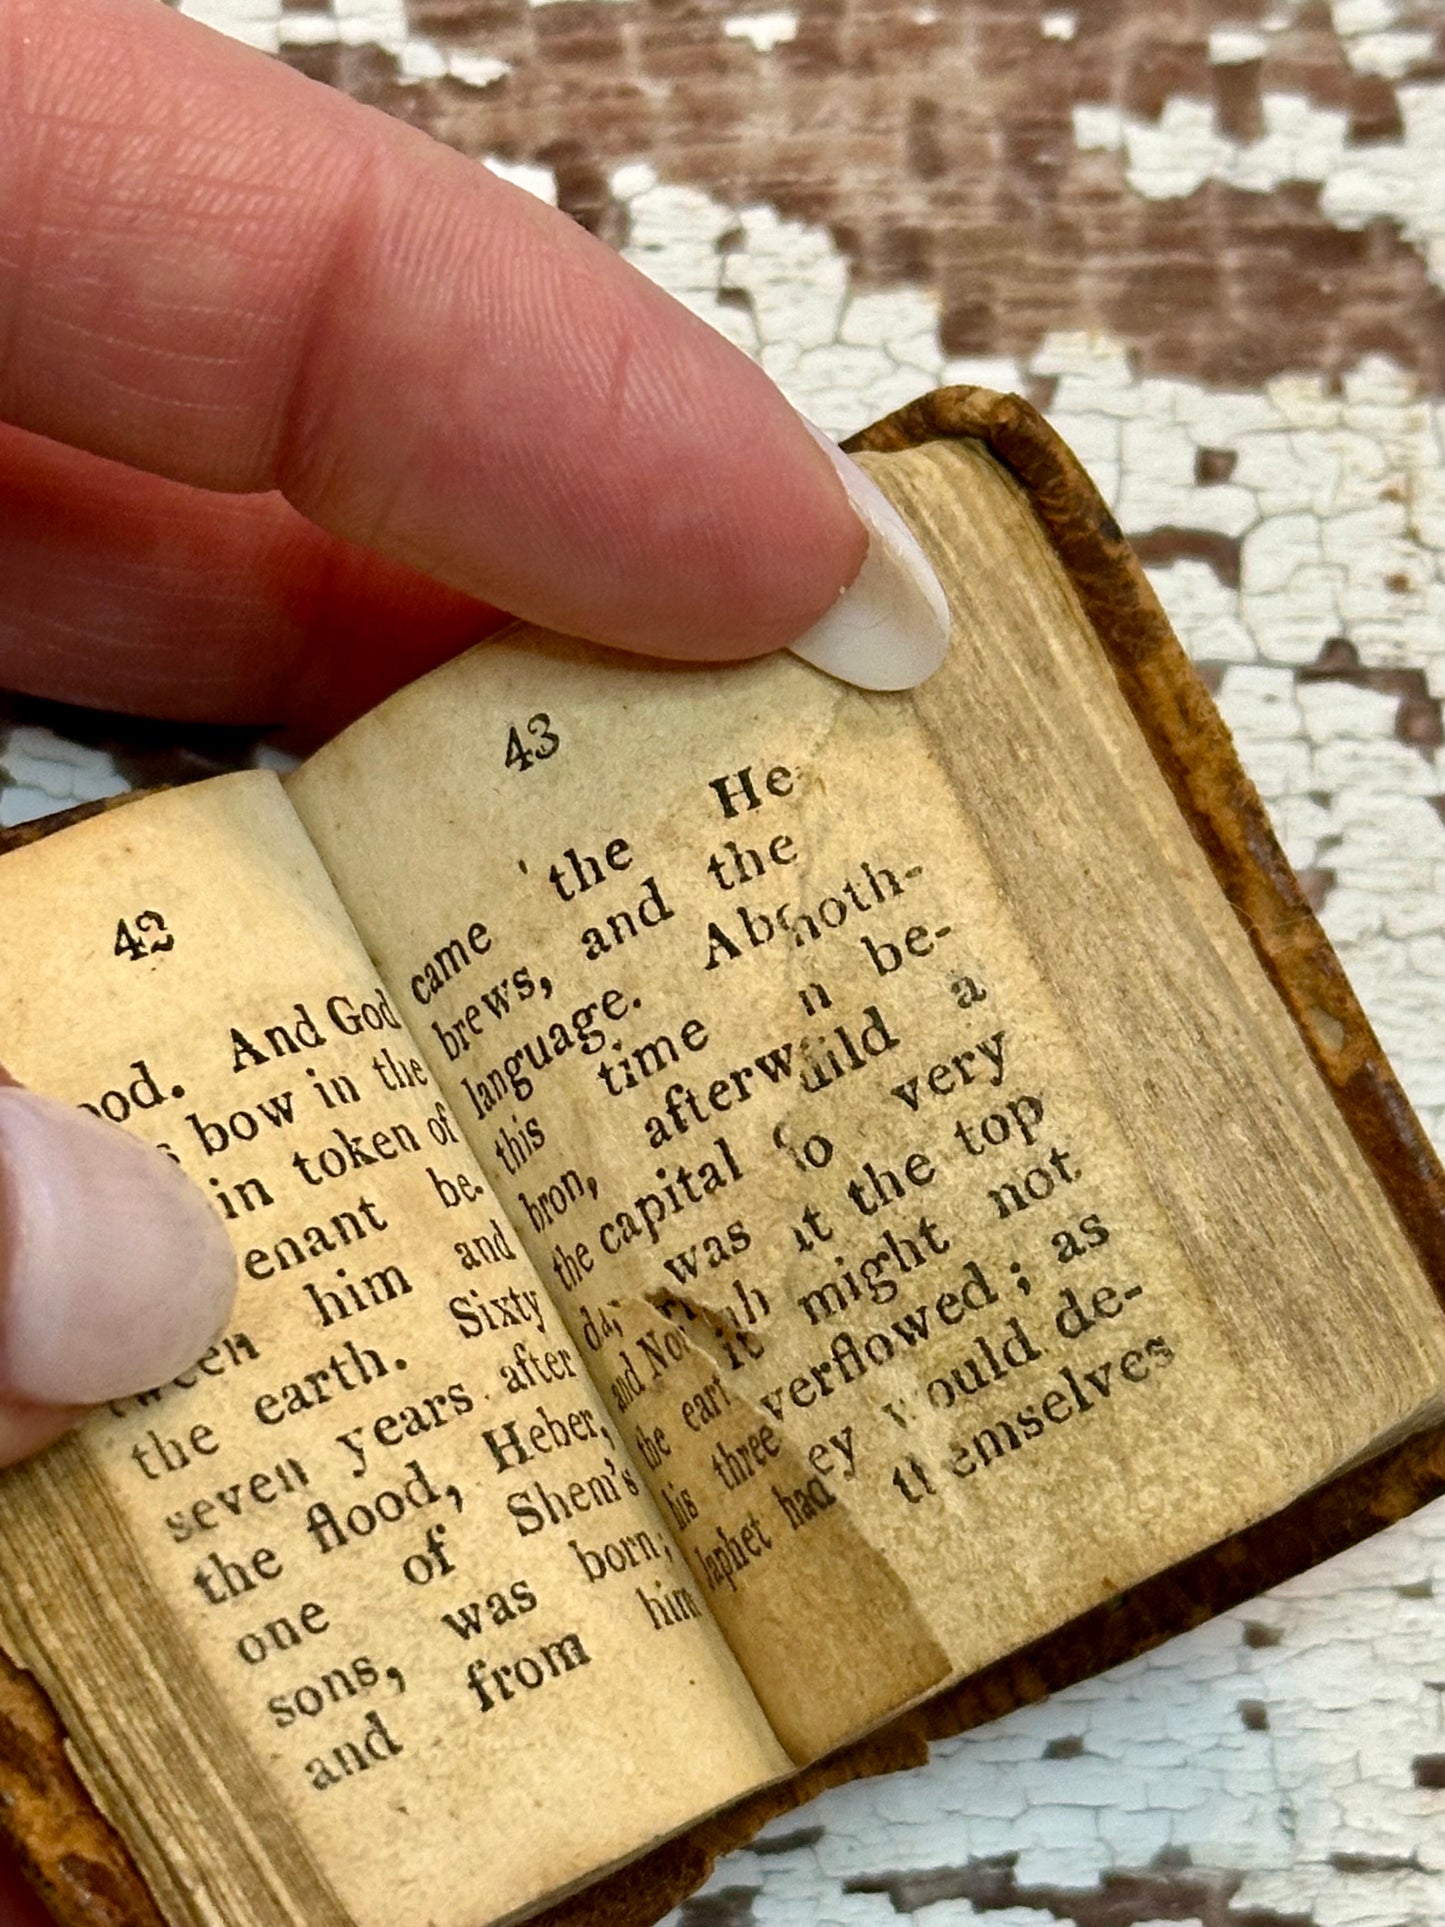 42
ood. And God
bow in the
in token of
enant be-
him and
the earth. Sixty
seven years after
the flood, Heber,
one of Shem's
sons, was born;
and from him
43
came the He-
brews, and the
language. Ab noth-
this time n be-
bron, afterw uild a
the capital o very
was it the top
and No h might not
the eart it verflowed; as
his three ey would de-
Japhet had themselves